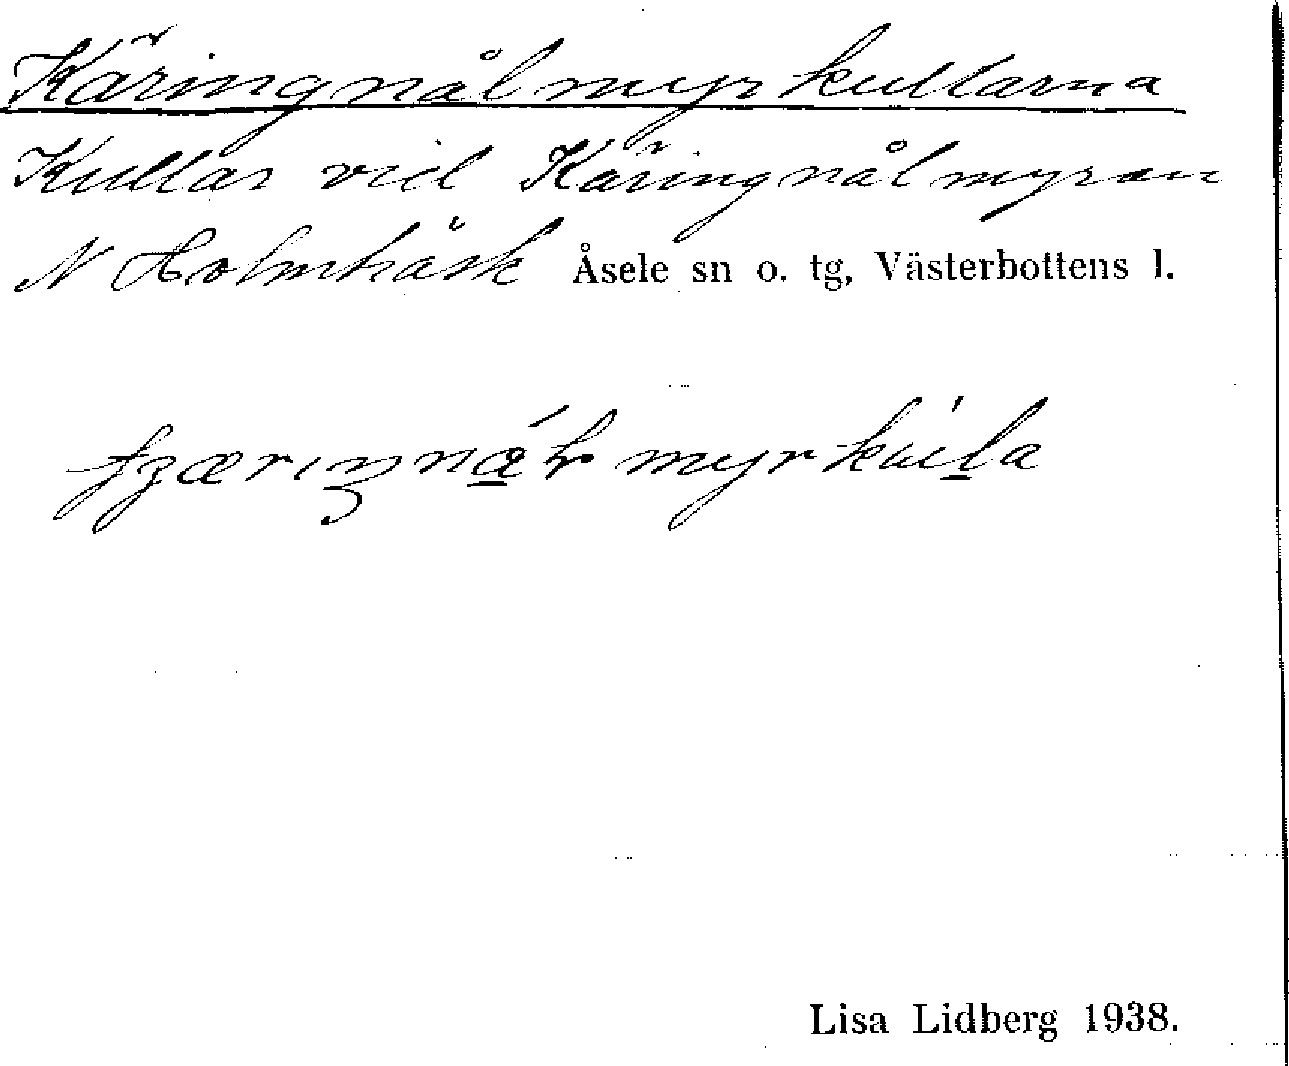 Käringnålmyrkullarna
Kullar vid Käringnålmyran
N Holmträsk Åsele sn o. tg, Västerbottens l.
Lisa Lidberg 1938.